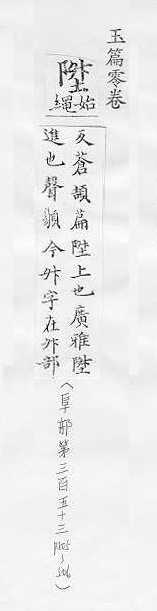 玉篇零卷
陞
始繩
反蒼頡篇陞上也廣雅陞
進也聲類今升字在升部
(阜部第三百五十三 P505~506)